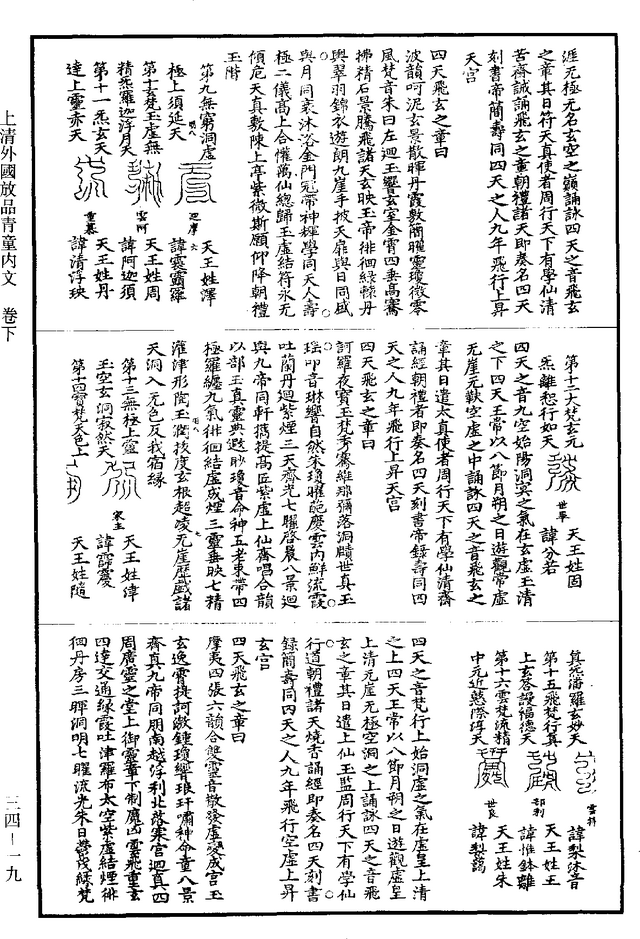 涯无極无名玄空之巔誦詠四天之音飛玄
之章其日符天真使者周行天下有學仙清
苦齋誠誦飛玄之章朝禮諸天即奏名四天
刻書帝簡壽同四天之人九年飛行上昇
天宮
四天飛玄之章曰
波韻呵泥玄景散暉丹霞敷簡曜靈瓊微零
風梵音朱日左迴玉響玄室金霄四垂高騫
拂精石景騰飛諸天玄映玉帝徘徊綠軿丹
輿翠羽錦衣遊朗九崖手披天扉與日同威
與月同衰沐浴金門冠帶神輝學同天人壽
極二儀高上合懽萬仙總歸玉虛結符永无
傾危天真敷陳上亭紫微斯願仰降朝禮
玉階
第九無窮洞虛 天王姓澤
極上須延天 諱霐霸羅
第十梵玉虛無 天王姓周
精炁羅迦浮月天 諱阿迦須
第十一炁玄天 天王姓丹
達上靈赤天 諱清浮玦
第十二大梵玄元 天王姓固
炁離愁行如天 諱分若
四天之音九空始陽洞冥之氣在玄虛玉清
之下四天王常以八節月朔之日遊觀常虛
无崖元獸空虛之中誦詠四天之音飛玄之
章其日遣太真使者周行天下有學仙清齋
誦經朝禮者即奏名四天刻書帝錄壽同四
天之人九年飛行上昇天宮
四天飛玄之章曰
訶羅夜寳玉梵秀騫維那彌落洞賾世真玉
瑶叩音琳響自然朱瓊曜葩慶雲內鮮流霞
吐蘭丹迴紫煙三天齊光七曜啓晨八景迴
與九帝同軒攜提高匠紫虛上仙齋唱合韻
以部玉真靈典遐眇瓊音命神五老東帶四
極羅纏九氣徘徊結虛成煙三靈垂映七精
灌津形陶玉潤拔度玄根超凌无崖歷盛諸
天洞入无色反我宿緣
第十三無極上靈 天王姓渟
玉空玄洞寂然天 諱霏霻
第十四寳梵天色上 天王姓随
真炁潘羅玄妙天 諱梨沐音
第十五飛梵行真 天王姓王
上玄荅謾福德天 諱惟鉢離
第十六雲梵流精 天王姓朱
中元近慈際淳天 諱梨謁
四天之音梵行上始洞虛之氣在虛皇上清
之上四天王常以八節月朔之日遊觀虛皇
上清元崖无極空洞之上誦詠四天之音飛
玄之章其日遣上仙玉監周行天下有學仙
行道朝禮諸天燒香誦經即奏名四天刻書
錄簡壽同四天之人九年飛行空虛上昇
玄宮
四天飛玄之章曰
摩夷四張六韻合雙靈音散發虛變成宮玉
玄逸霄提訶緻鍾瓊響琅玕嘯神命童八景
齊真九帝同朋南越浮利北落寒宮迴真四
周廣靈之堂上御靈章下制魔凶雲飛重玄
四達交通綠霞吐津羅布太空紫虛結煙徘
徊丹房三暉洞明七曜流光朱日營戍綠梵
上清外國放品青童内文 卷下
三四—一九